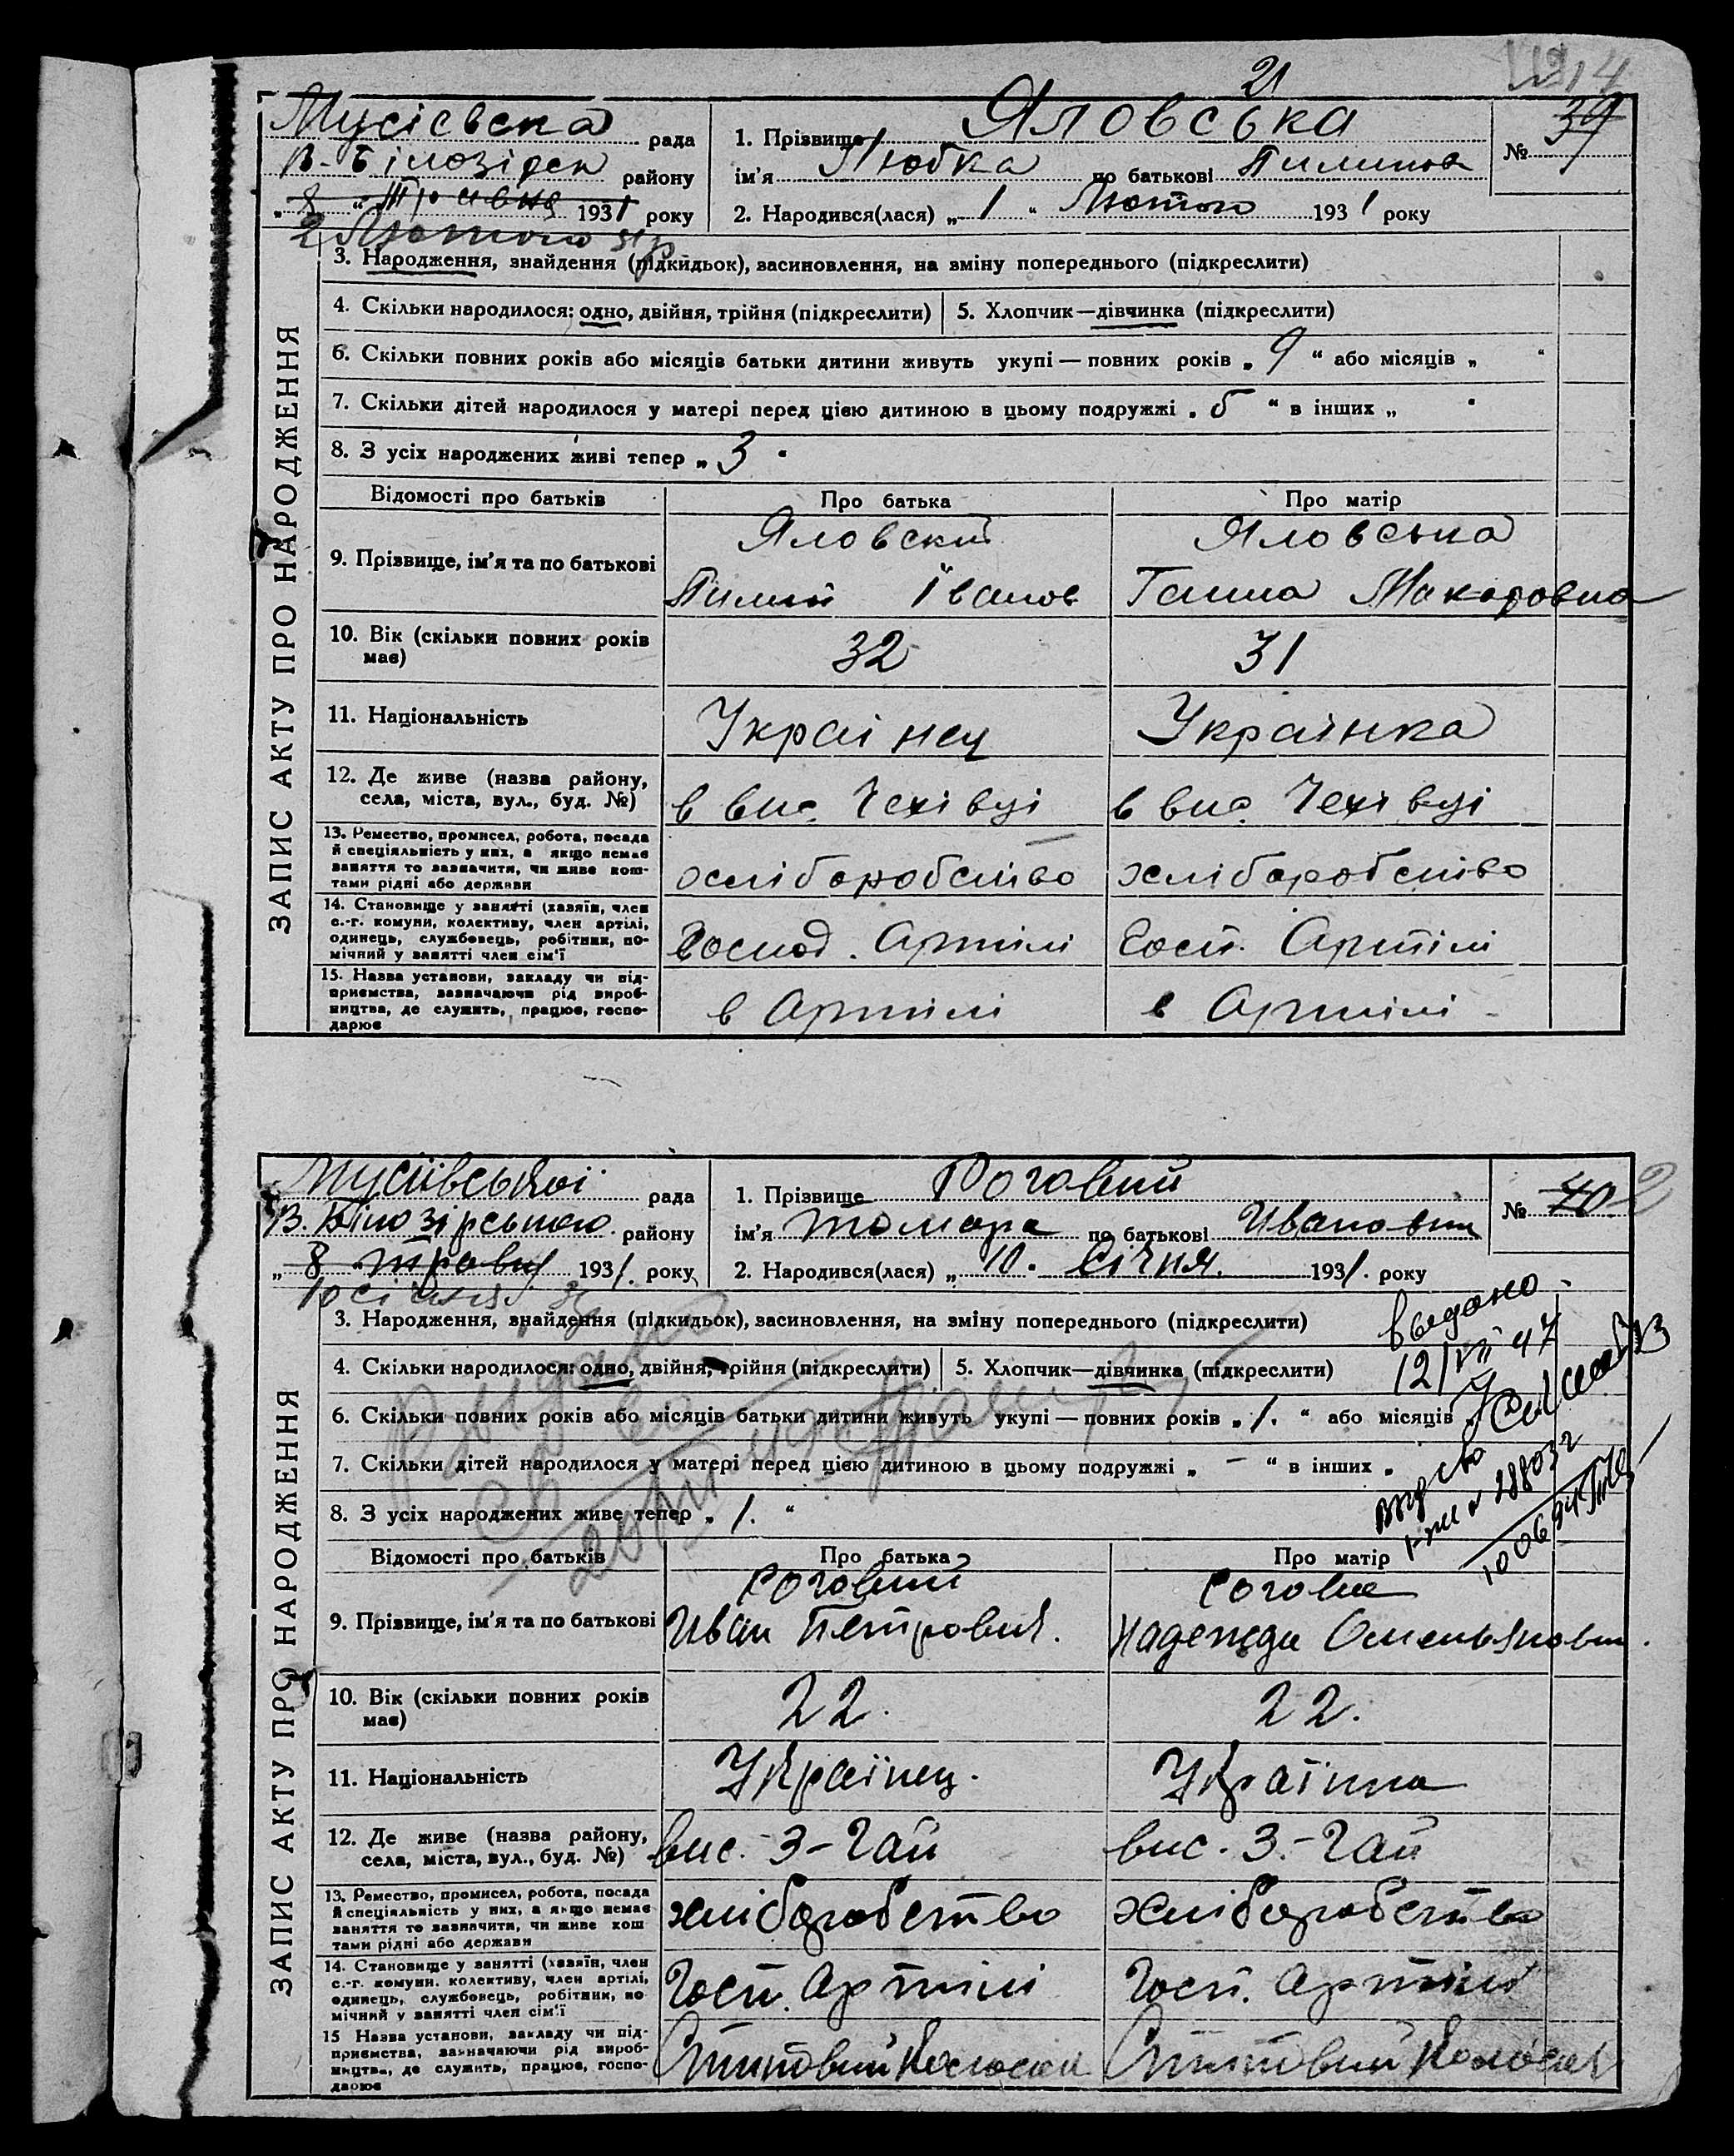 21
14
Мусієвска рада
В-Білозірск району
„ 8 “ Травня 1931 року
2 Лютого 31 р
1. Прізвище Яловська
№ 39
1
ім'я Любка по батькові Пилипов
2. Народився(лася) „ 1 “ Лютого 1931 року
ЗАПИС АКТУ ПРО НАРОДЖЕННЯ
3. Народження, знайдення (підкидьок), засиновлення, на зміну попереднього (підкреслити)
4. Скільки народилося: одно, двійня, трійня (підкреслити)
5. Хлопчик—дівчинка (підкреслити)
6. Скільки повних років або місяців батьки дитини живуть укупі — повних років „ 9 “ або місяців „ “
7. Скільки дітей народилося у матері перед цією дитиною в цьому подружжі „ 5 “ в інших „ “
8. З усіх народжених живі тепер „ 3 “
Відомості про батьків
Про батька
Про матір
9. Прізвище, ім'я та по батькові
Яловский
Пилип Іванов
Яловська
Ганна Макаровна
10. Вік (скільки повних років
має)
32
31
11. Національність
Украінец
Украінка
12. Де живе (назва району,
села, міста, вул., буд. №)
в вис. Чехівці
в вис. Чехівці
13. Ремество, промисел, робота, посада
й спеціяльність у них, а якщо немає
заняття то зазначити, чи живе кош-
тами рідні або держави
хліборобство
хліборобство
14. Становище у занятті (хазяїн, член
с.-г. комуни, колективу, член артілі,
одинець, службовець, робітник, по-
мічний у занятті член сім'ї
Господ. Артілі
Госп. Артілі
15. Назва установи, закладу чи під-
приємства, зазначаючи рід вироб-
ництва, де служить, працює, госпо-
дарює
в Артілі
в Артілі
Мусіївської рада
В. Білозірського району
„ 8 травня 1931. року
10 січня 31
1. Прізвище Роговий
№ 40
2
ім'я Томара по батькові Ивановни
2. Народився(лася) „ 10. Січня. 1931. року
ЗАПИС АКТУ ПРО НАРОДЖЕННЯ
3. Народження, знайдення (підкидьок), засиновлення, на зміну попереднього (підкреслити)
4. Скільки народилося: одно, двійня, трійня (підкреслити)
5. Хлопчик—дівчинка (підкреслити)
выдано
12/VII 47
6. Скільки повних років або місяців батьки дитини живуть укупі — повних років „ 1. “ або місяців „
7. Скільки дітей народилося у матері перед цією дитиною в цьому подружжі „ — “ в інших „
8. З усіх народжених живе тепер „ 1. “
Відомості про батьків
Про батька
Про матір
9. Прізвище, ім'я та по батькові
Роговий
Иван Петрович.
Рогова
Надежда Омельяновни.
10. Вік (скільки повних років
має)
22.
22.
11. Національність
Українец.
Українка
12. Де живе (назва району,
села, міста, вул., буд. №)
вис. З-Гай
вис. З.-Гай
13. Ремество, промисел, робота, посада
й спеціяльність у них, а якщо немає
заняття то зазначити, чи живе кош
тами рідні або держави
хліборобство
хліборобство
14. Становище у занятті (хазяїн, член
с.-г. комуни. колективу, член артілі,
одинець, службовець, робітник, по
мічний у занятті член сім'ї
Госп. Артілі
Госп. Артілі
15 Назва установи, закладу чи під-
приємства, зазначаючи рід вироб-
ництва, де служить, працює, госпо-
дарює
Степовий Колосок
Степовий Колосок